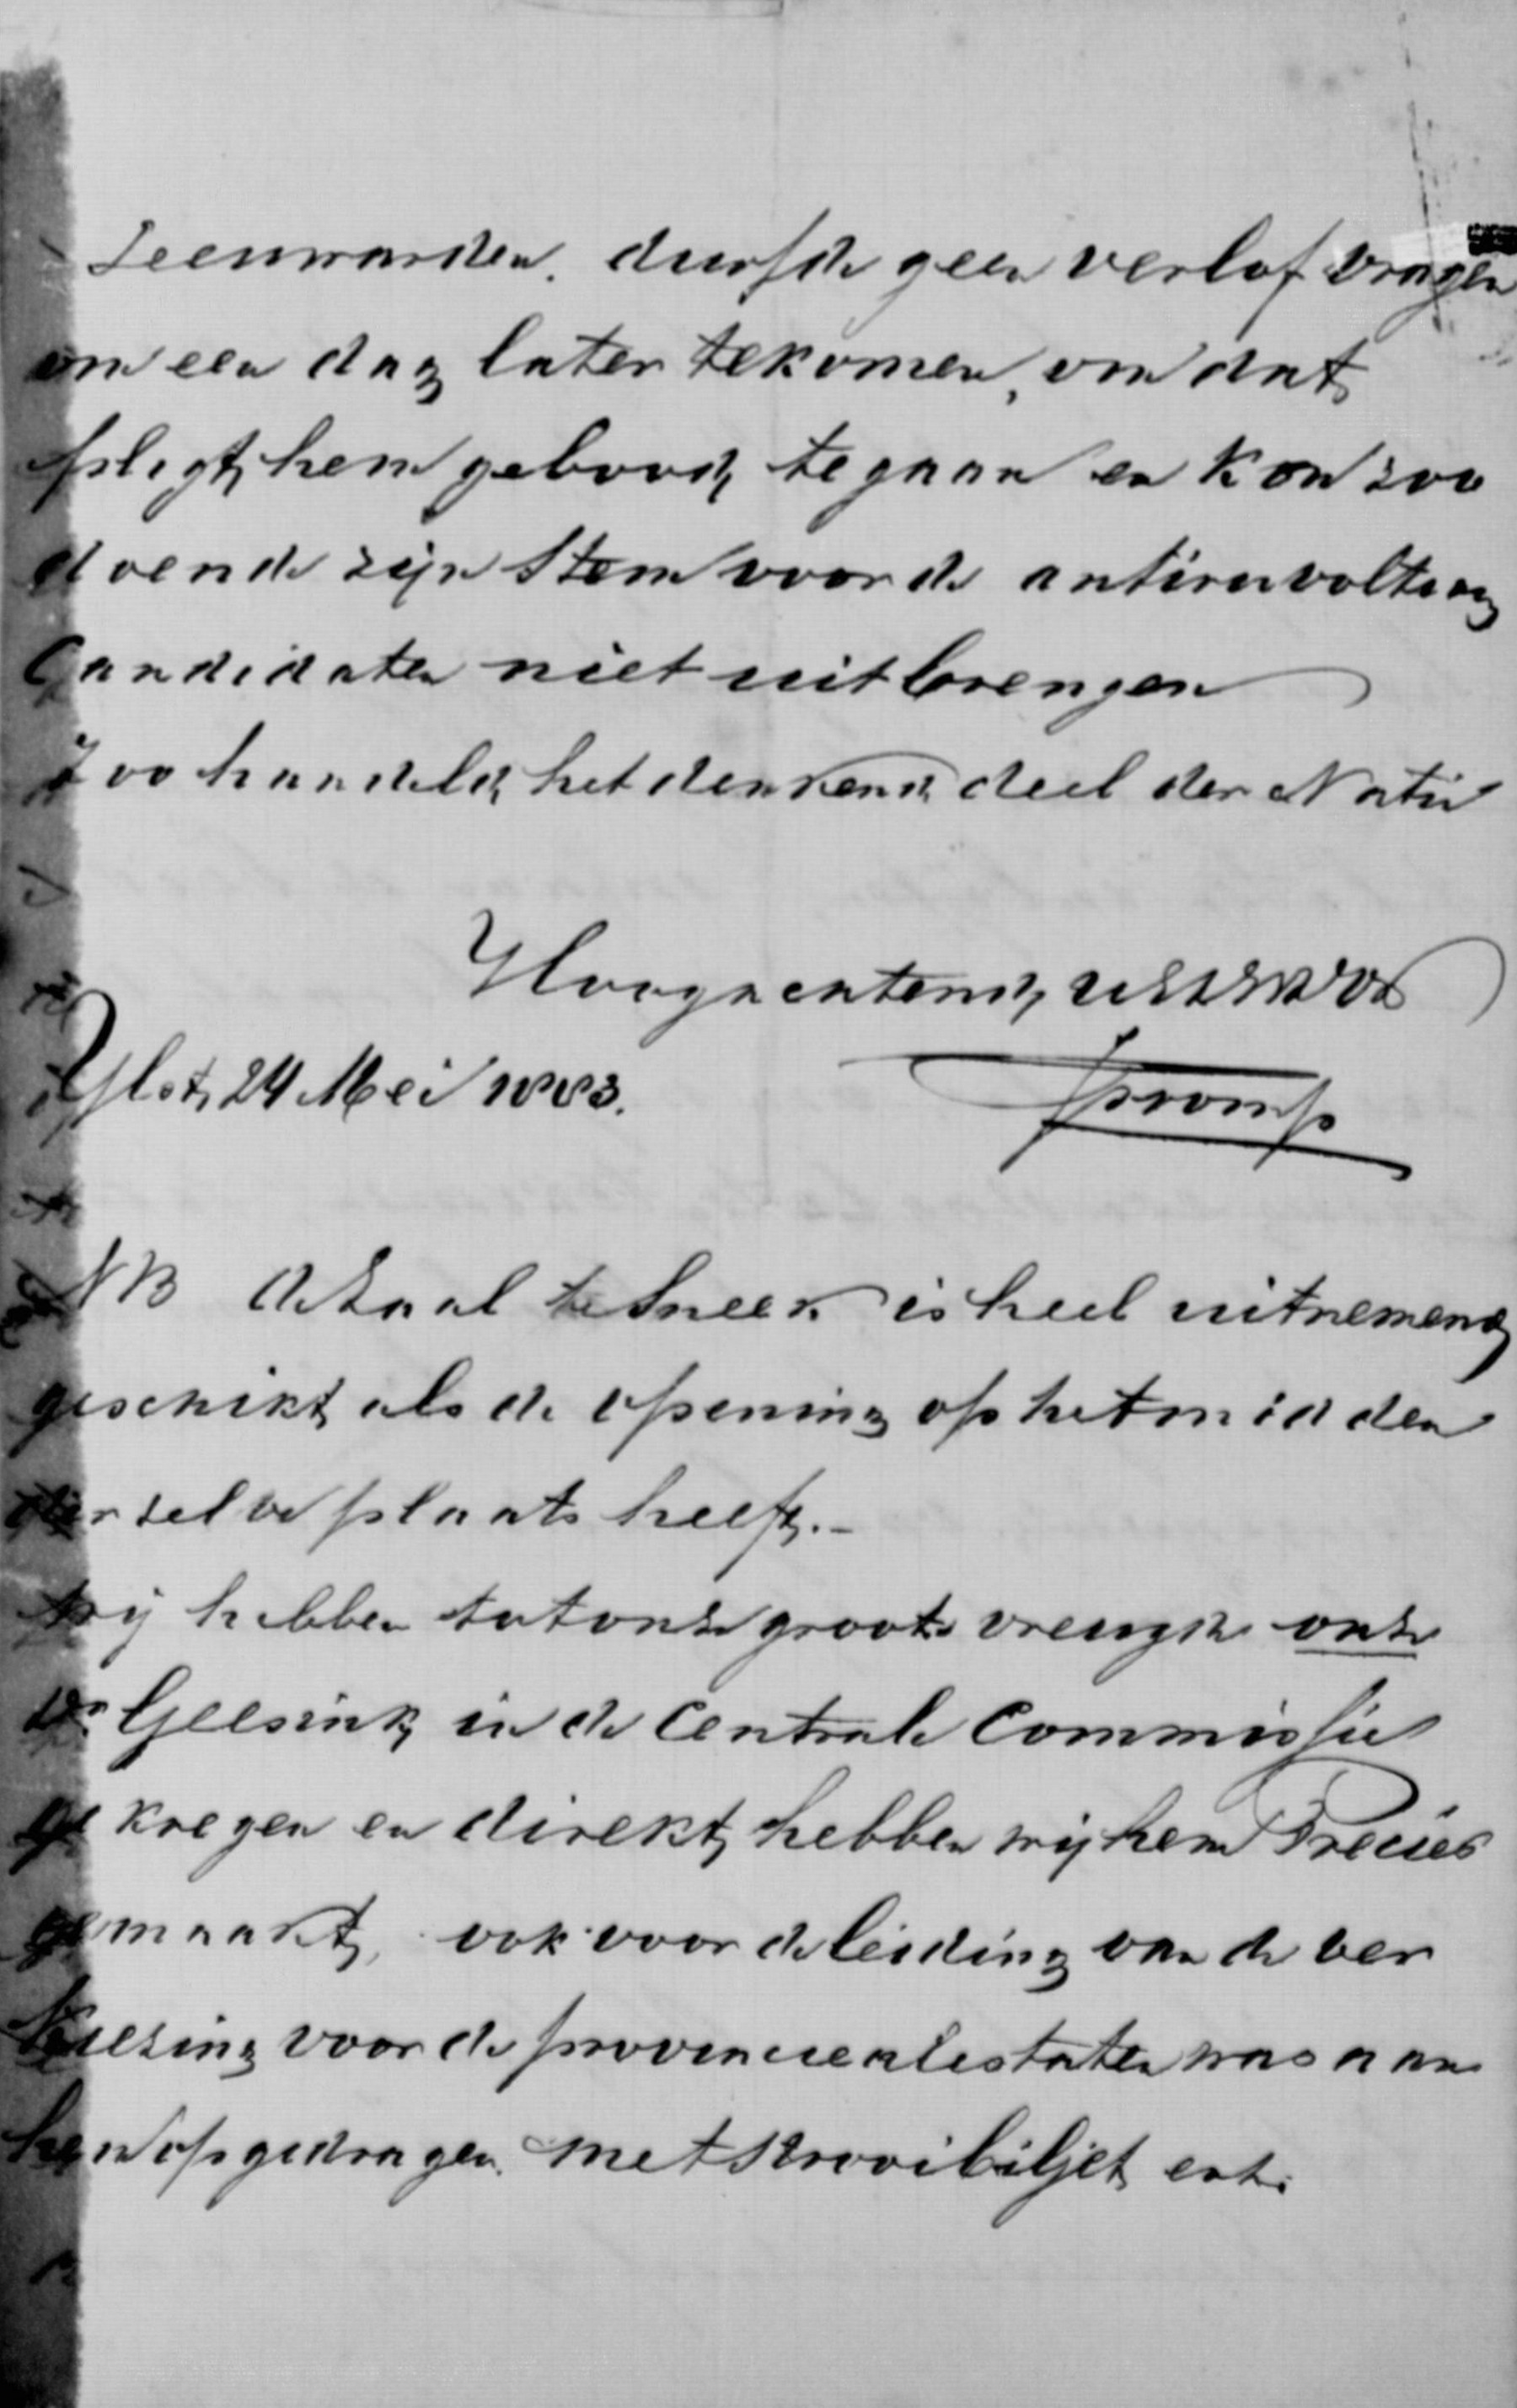 Leeuwarden. durfde geen verlof vragen
om een dag later tekomen, om dat
pligt hem gebood te gaan en kon zoo
doende zijn stem voor de antirevolten
Candidaten niet uitbrengen
Zoo handeld het denkend deel der Natie
Hoogachtend, UEDWDr
IJlst, 24 Mei 1883.
NB de Zaal te Sneek is heel uitnemend
geschikt als de opening op het midden
derzelve plaats heeft.-
Wij hebben tot onze groote vreugde onze
Ds. Geesink in de Centrale Commissie
gekregen en direkt hebben wij hem Precies
gemaakt, ook voor de leiding van de ver
kiezing voor de provincialestaten was aan
hem opgedragen. met strooibiljet ent.